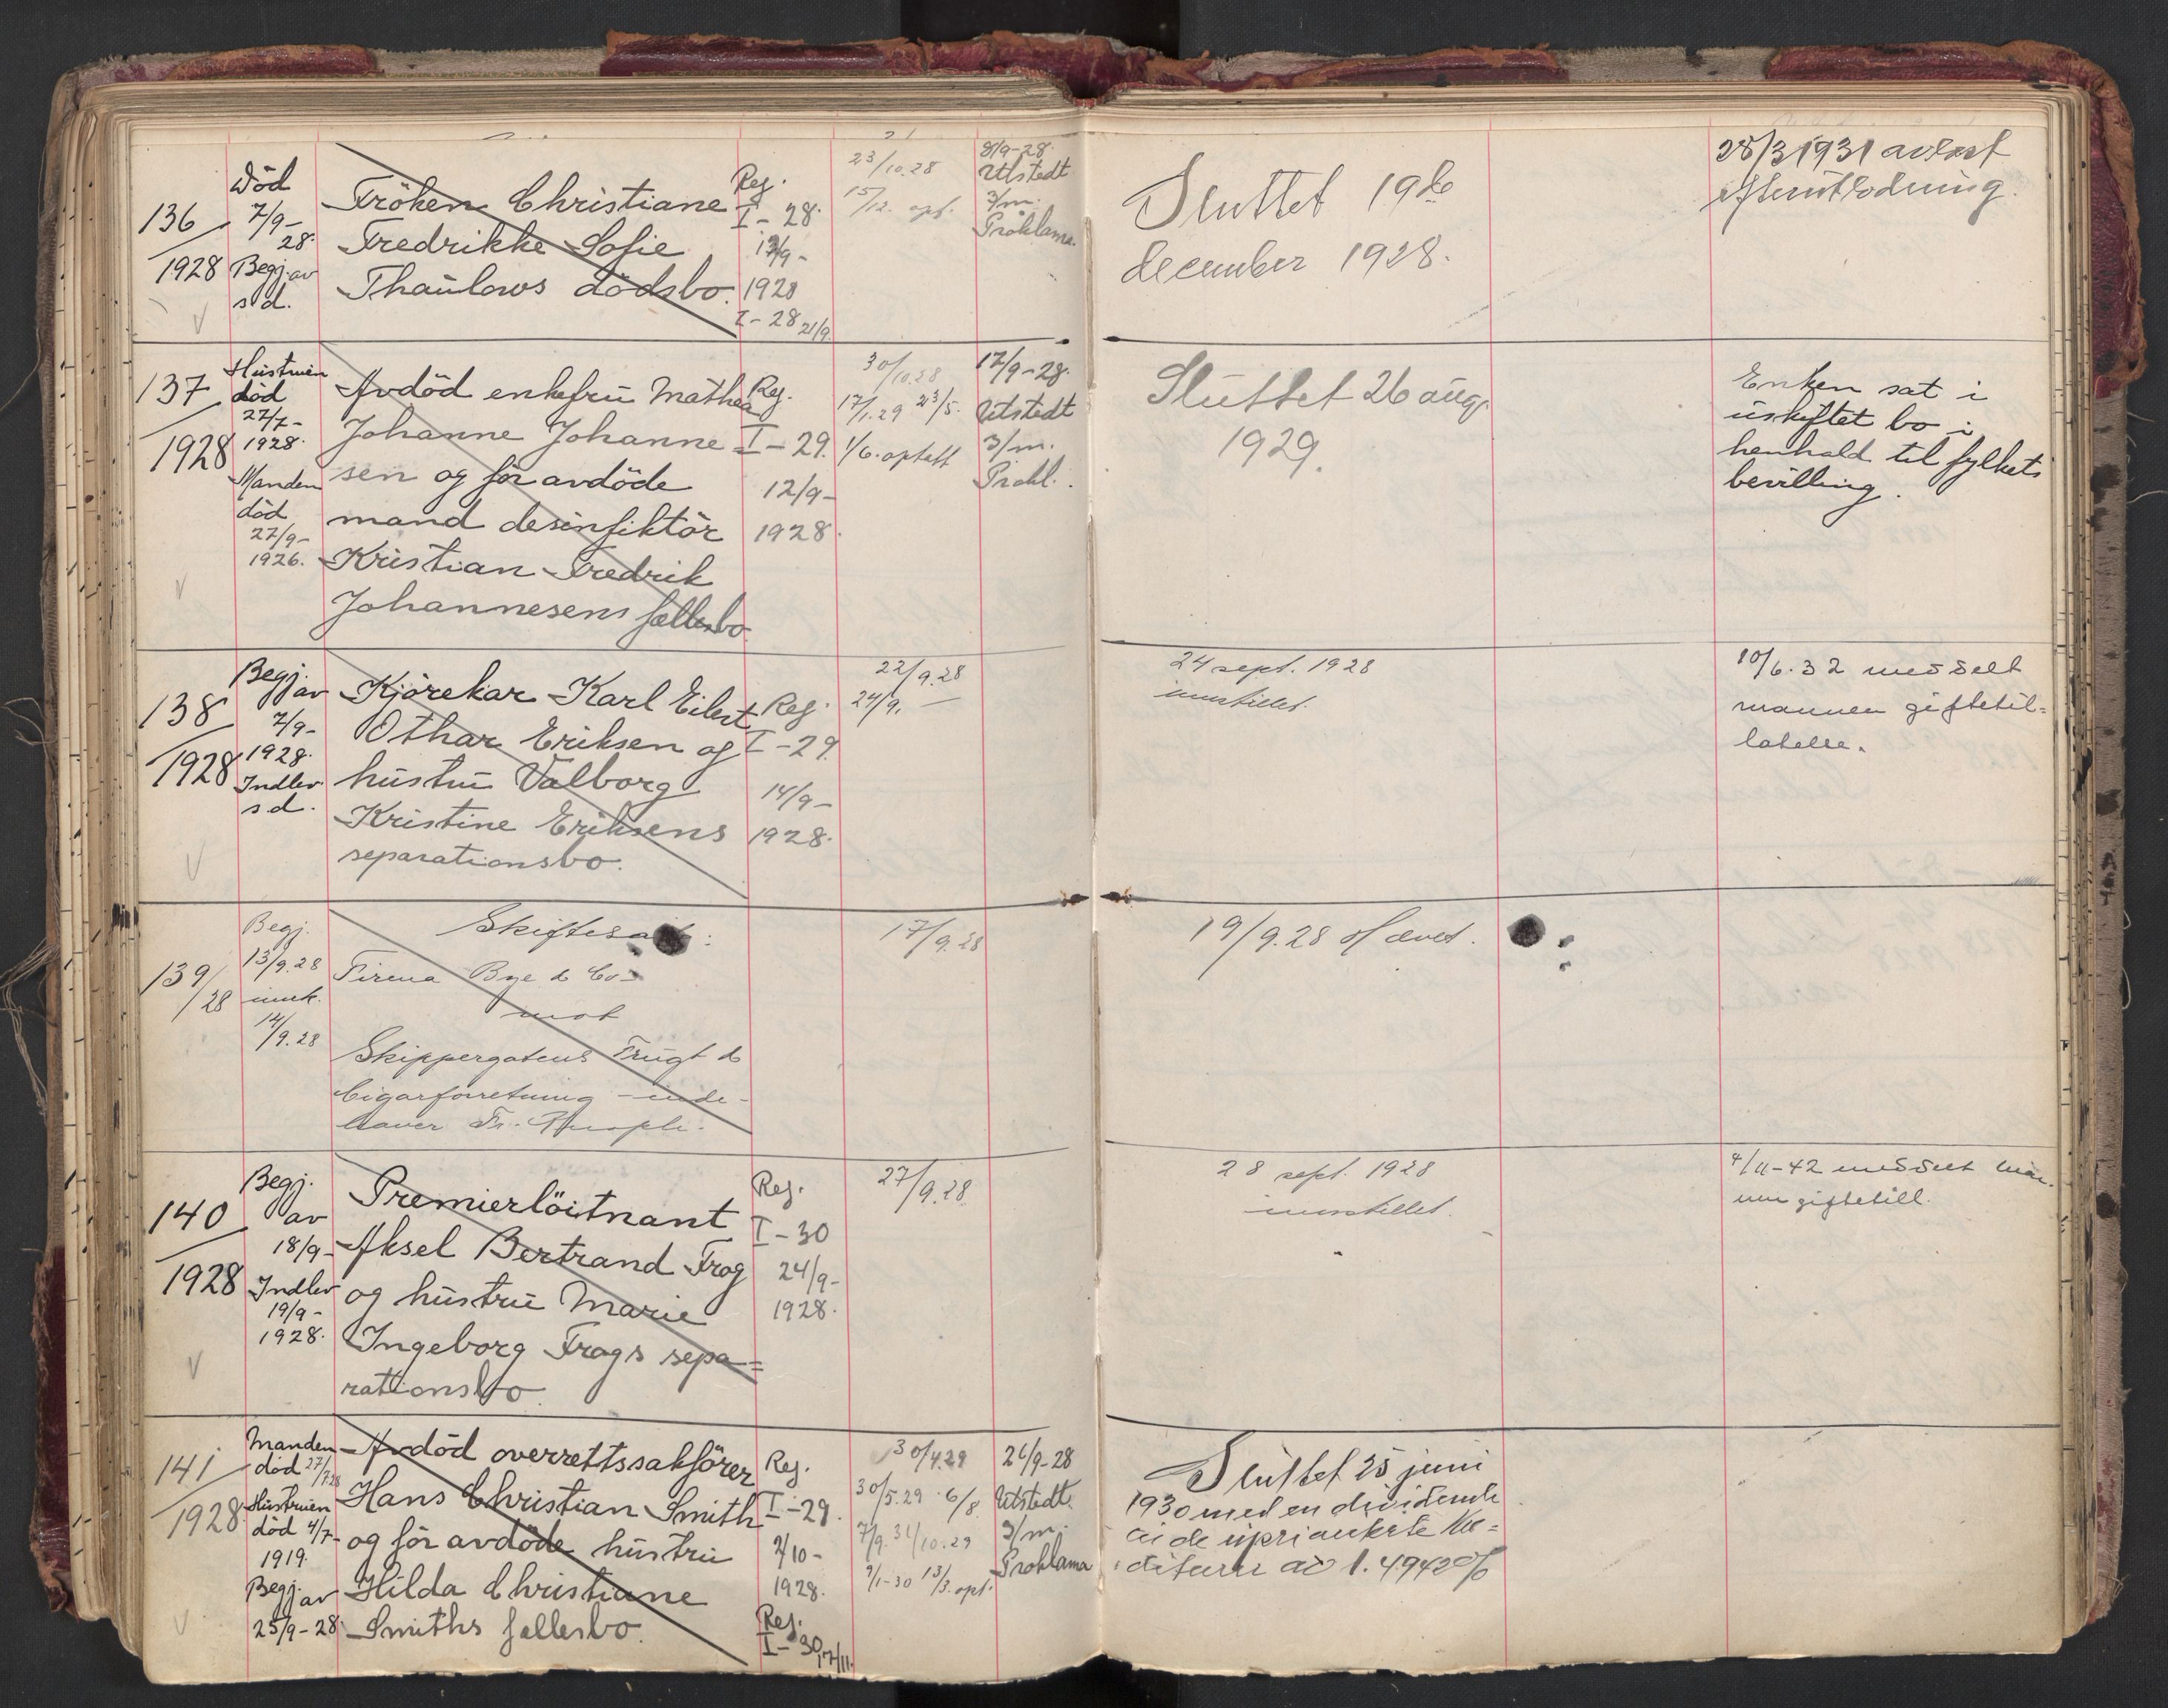 136
1928
Död
7/9-
28.
Begj. av
s.d.
Fröken Christiane
Fredrikke Sofie
Thaulows dödsbo.
Reg.
I - 28.
17/9 -
1928
I - 28 21/9.
23/10.28
15/12. opt.
8/9-28.
Utstedt
3/m.
Proklama.
Sluttet 19de
december 1928.
28/3 1931 avlast
efterutlodning.
137
1928
Hustruen
död
27/7-
1928.
Manden
död
27/9-
1926.
Avdöd enkefru Mathea
Johanne Johanne =
sen ogför avdöde
mand desinfiktör
Kristian Fredrik
Johannesens fællesbo
Reg.
I - 29.
12/9-
1928.
30/10.28
17/1.29 23/5.
1/6. optatt
17/9-28.
Utstedt
3/m.
Prokl.
Sluttet 26 aug.
1929.
Enken sat i
uskiftet bo i
henhold til fylkets
bevilling.
138
1928
Begj. av
7/9-
1928.
Indlev.
s.d.
Kjörekar Karl Eilert
Othar Eriksen og
hustru Valborg
Kristine Eriksens
separationsbo.
Reg.
I - 29.
14/9-
1928.
22/9.28
24/9. —
24 sept. 1928
innstillet.
10/6.32 meddelt
mannen giftetil=
latelse.
139/28
Begj.
13/9.28
innk.
14/9.28
Skiftesak:
Firma Bye & Co -
mot
Skippergatens Frugt &
Cigarforretning - inde-
haver Fr.
17/9.28
19/9.28 Hævet.
140
1928
Begj.
av
18/9-
Indlev
19/9-
1928.
Premierlöitnant
Aksel Bertrand Frog
og hustru Marie
Ingeborg Frogs sepa=
rationsbo
Reg.
I - 30
24/9-
1928.
27/9.28
28 sept. 1928
innstillet.
4/11-42 meddelt man.
nen giftetill.
141
1928
Manden
död 27/7 28
Hustruen
död 4/7-
1919.
Begj. av
25/9-28.
Avdöd overrettssakförer
Hans Christian Smith
og för avdöde hustru
Hilda Christiane
Smiths fællesbo.
Reg.
I - 29.
2/10-
1928.
Reg.
I - 30 17/11.
30/4.29
30/5.29 6/8
7/9. 31/10.29
9/1-30 13/3. opt.
26/9-28
Utstedt
3/m.
Proklama
Sluttet 25 juni
1930 med en dividende
til de uprioriterte kre=
ditorer av 1.4942%